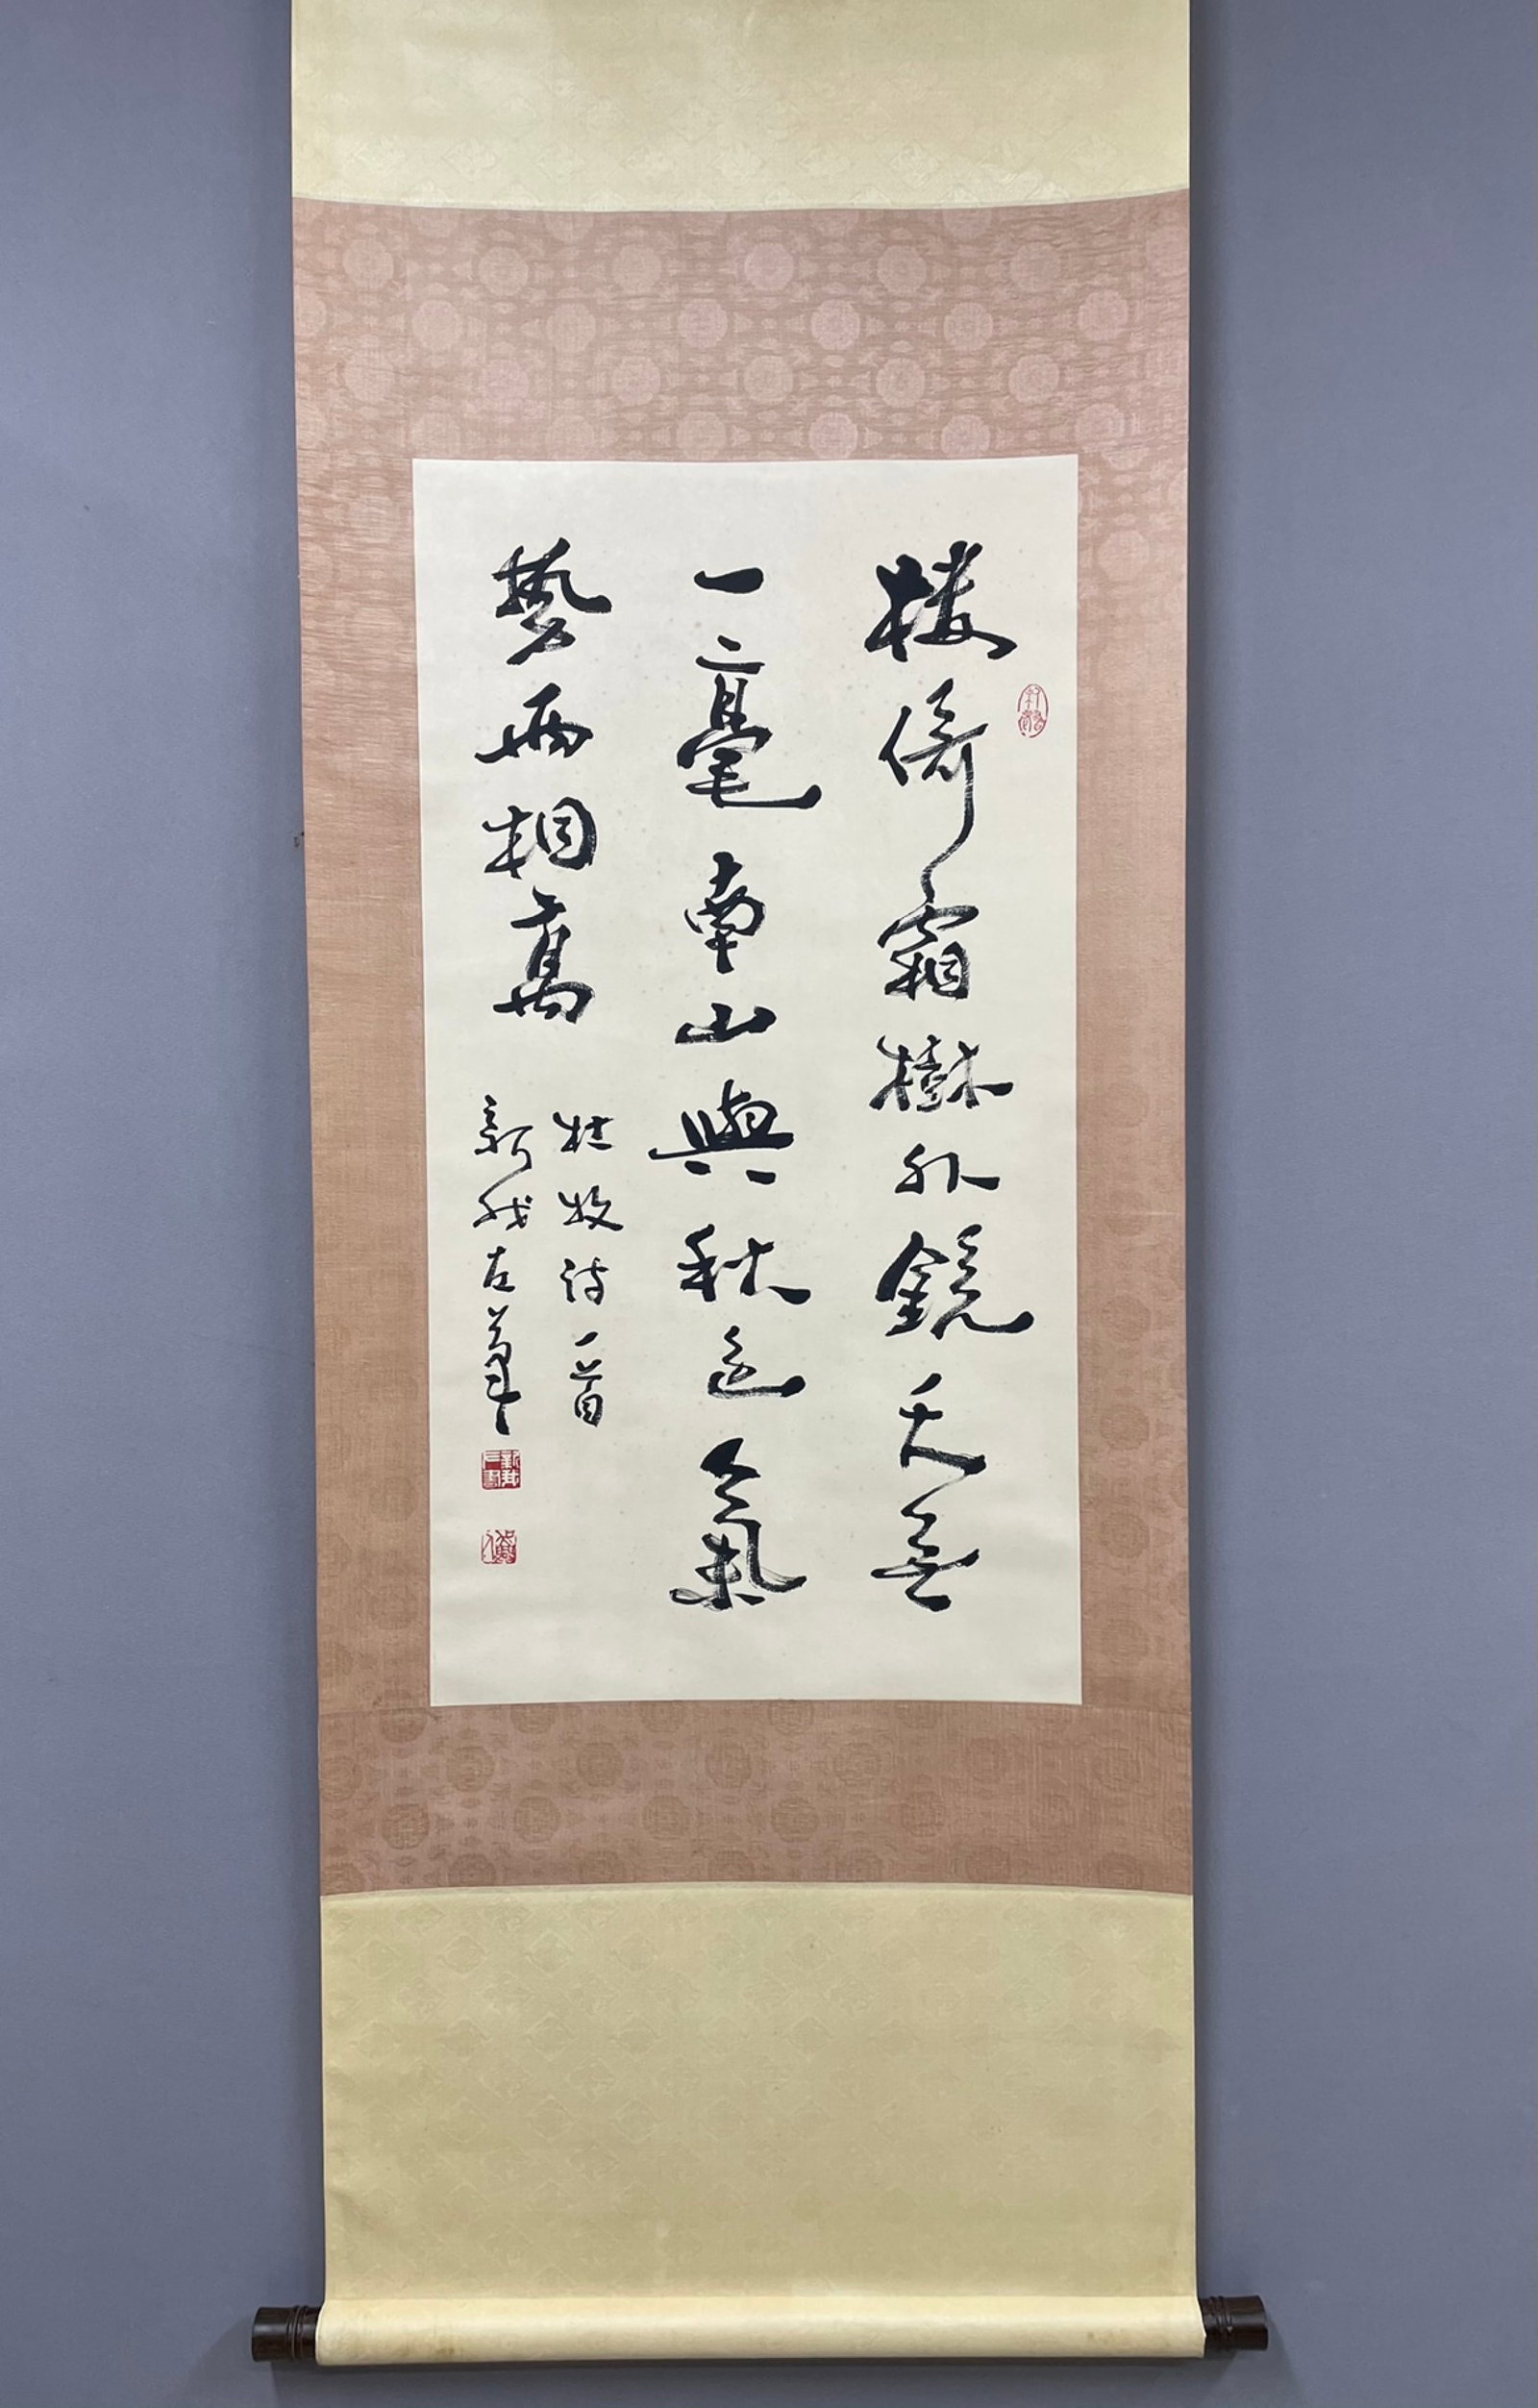 楼倚霜樹外鏡天無
一毫南山與秋色氣
勢兩相高
杜牧詩一首
新我左筆